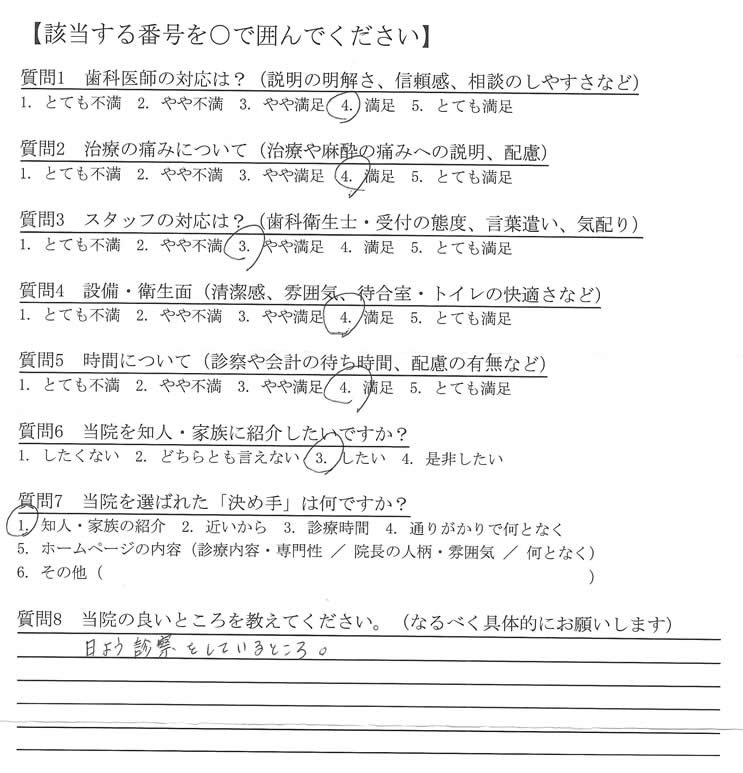 【該当する番号を○で囲んでください】
質問1 歯科医師の対応は？（説明の明解さ、信頼感、相談のしやすさなど）
1. とても不満 2. やや不満 3. やや満足 4. 満足 5. とても満足
質問2 治療の痛みについて（治療や麻酔の痛みへの説明、配慮）
1. とても不満 2. やや不満 3. やや満足 4. 満足 5. とても満足
質問3 スタッフの対応は？（歯科衛生士・受付の態度、言葉遣い、気配り）
1. とても不満 2. やや不満 3. やや満足 4. 満足 5. とても満足
質問4 設備・衛生面（清潔感、雰囲気、待合室・トイレの快適さなど）
1. とても不満 2. やや不満 3. やや満足 4. 満足 5. とても満足
質問5 時間について（診察や会計の待ち時間、配慮の有無など）
1. とても不満 2. やや不満 3. やや満足 4. 満足 5. とても満足
質問6 当院を知人・家族に紹介したいですか？
1. したくない 2. どちらとも言えない 3. したい 4. 是非したい
質問7 当院を選ばれた「決め手」は何ですか？
1. 知人・家族の紹介 2. 近いから 3. 診療時間 4. 通りがかりで何となく
5. ホームページの内容（診療内容・専門性 ／ 院長の人柄・雰囲気 ／ 何となく）
6. その他（ ）
質問8 当院の良いところを教えてください。（なるべく具体的にお願いします）
日よう診察をしているところ。